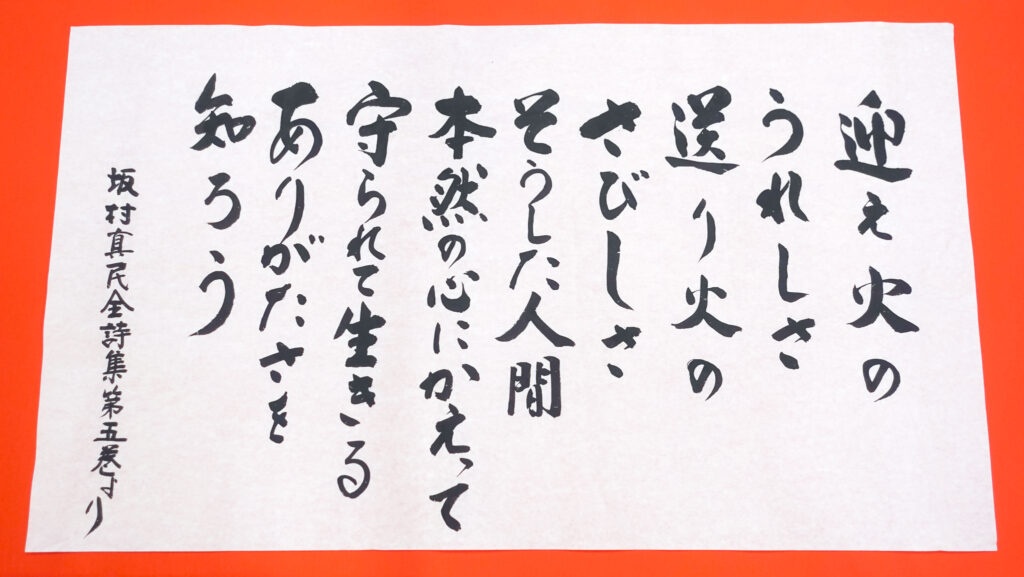 迎え火の
うれしさ
送り火の
さびしさ
そうした人間
本然の心にかえって
守られて生きる
ありがたさを
知ろう
坂村真民全詩集第五巻より